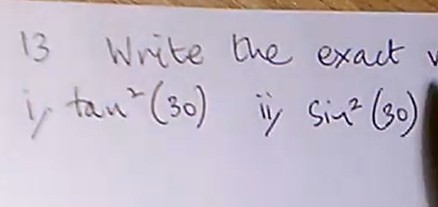 13 Write the exact
i, tan²(30) ii, Sin²(30)